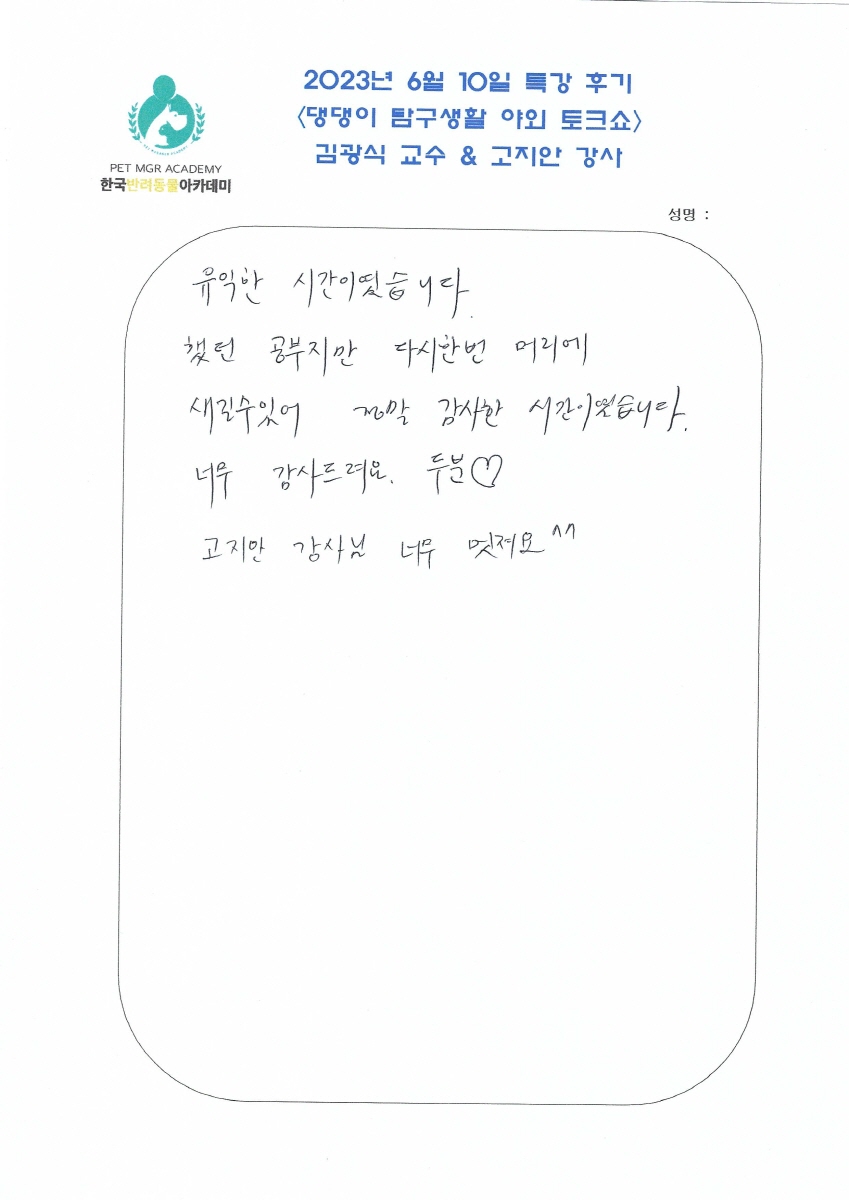 2023년 6월 10일 특강 후기
<댕댕이 탐구생활 야외 토크쇼>
김광식 교수 & 고지안 강사
PET MGR ACADEMY
한국반려동물아카데미
성명 :
유익한 시간이었습니다.
했던 공부지만 다시한번 머리에
새길수있어 정말 감사한 시간이었습니다.
너무 감사드려요. 두분♡
고지안 강사님 너무 멋져요^^